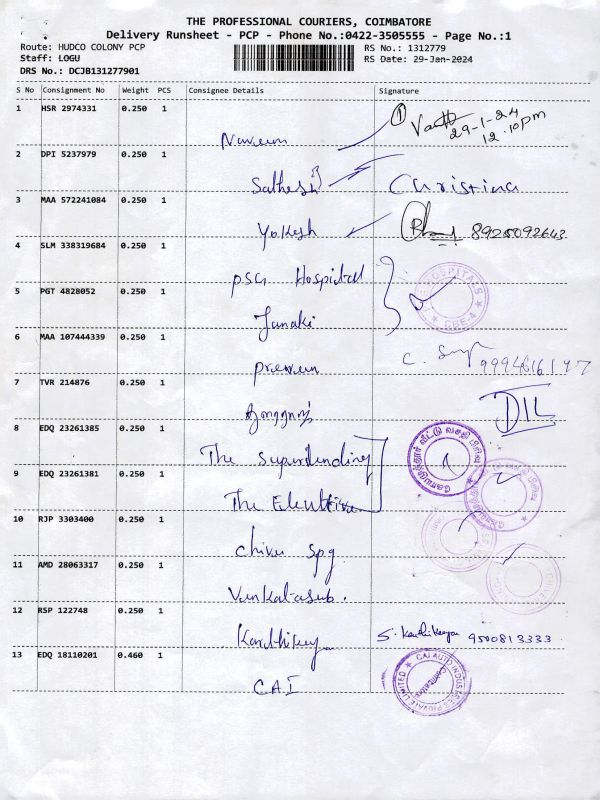 THE PROFESSIONAL COURIERS, COIMBATORE
Delivery Runsheet - PCP - Phone No.:0422-3505555 - Page No.:1
Route: HUDCO COLONY PCP RS No.: 1312779
Staff: LOGU RS Date: 29-Jan-2024
DRS No.: DCJB131277901
S No Consignment No Weight PCS Consignee Details Signature
1 HSR 2974331 0.250 1 Naveen 29-1-24 12.10pm
2 DPI 5237979 0.250 1 Sathesh Christina
3 MAA 572241084 0.250 1 Yokesh 8925092643
4 SLM 338319684 0.250 1 PSG Hospital
5 PGT 4828052 0.250 1 Janaki
6 MAA 107444339 0.250 1 praveen C.
7 TVR 214876 0.250 1
8 EDQ 23261385 0.250 1 The Superitending
9 EDQ 23261381 0.250 1 The
10 RJP 3303400 0.250 1 Chive Spg
11 AMD 28063317 0.250 1 Venkatasub.
12 RSP 122748 0.250 1 Karthikeya S. Karthikeyan 9500813333
13 EDQ 18110201 0.460 1 CAI
CAI AUTO INDUSTRIES PRIVATE LIMITED
Coimbatore